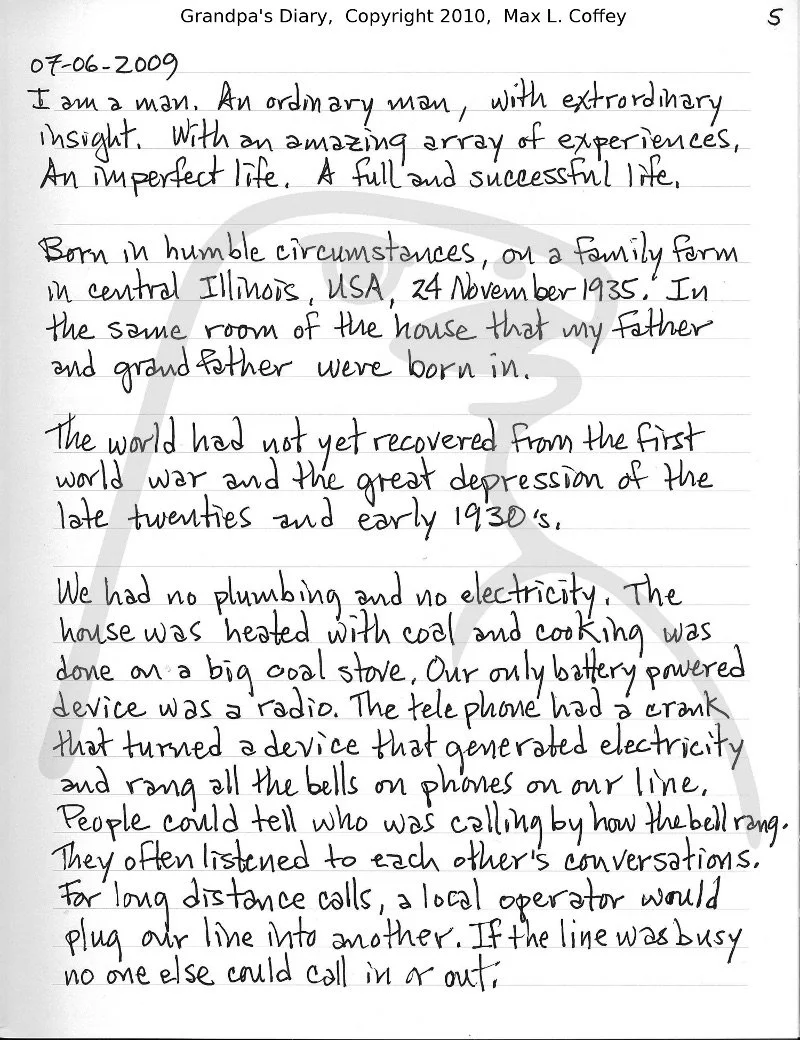 Grandpa's Diary, Copyright 2010, Max L. Coffey
5
07-06-2009
I am a man. An ordinary man, with extrordinary
insight. With an amazing array of experiences,
An imperfect life. A full and successful life.
Born in humble circumstances, on a family farm
in central Illinois, USA, 24 November 1935. In
the same room of the house that my father
and grandfather were born in.
The world had not yet recovered from the first
world war and the great depression of the
late twenties and early 1930's.
We had no plumbing and no electricity. The
house was heated with coal and cooking was
done on a big coal stove. Our only battery powered
device was a radio. The telephone had a crank
that turned a device that generated electricity
and rang all the bells on phones on our line.
People could tell who was calling by how the bell rang.
They often listened to each other's conversations.
For long distance calls, a local operator would
plug our line into another. If the line was busy
no one else could call in or out.